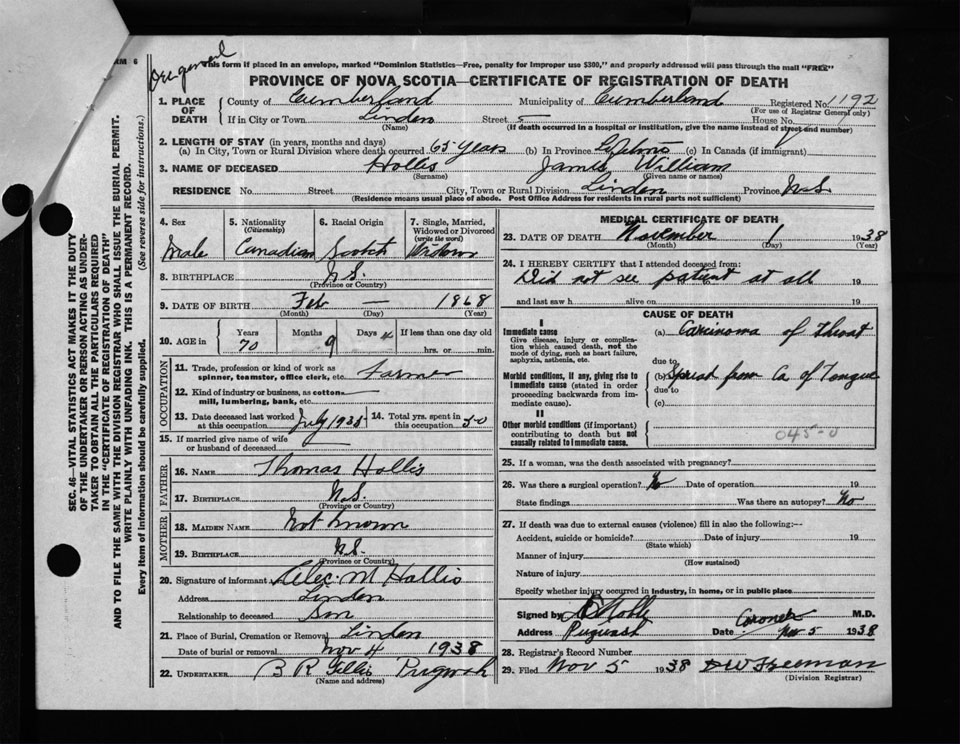 RM 6
Original
This form if placed in an envelope, marked "Dominion Statistics—Free, penalty for improper use $300," and properly addressed will pass through the mail "FREE"
PROVINCE OF NOVA SCOTIA—CERTIFICATE OF REGISTRATION OF DEATH
1. PLACE OF DEATH County of Cumberland Municipality of Cumberland Registered No. 1192
(For use of Registrar General only)
If in City or Town Linden Street House No.
(Name) (If death occurred in a hospital or institution, give the name instead of street and number)
2. LENGTH OF STAY (in years, months and days)
(a) In City, Town or Rural Division where death occurred 65 years (b) In Province (c) In Canada (if immigrant)
3. NAME OF DECEASED Hollis James William
(Surname) (Given name or names)
RESIDENCE No. Street City, Town or Rural Division Linden Province N.S.
(Residence means usual place of abode. Post Office Address for residents in rural parts not sufficient)
4. Sex Male
5. Nationality (Citizenship) Canadian
6. Racial Origin Scotch
7. Single, Married, Widowed or Divorced (write the word) Widow
8. BIRTHPLACE N.S.
(Province or Country)
9. DATE OF BIRTH Feb — 1868
(Month) (Day) (Year)
10. AGE in Years 70 Months 9 Days If less than one day hrs. or min.
OCCUPATION
11. Trade, profession or kind of work as spinner, teamster, office clerk, etc. Farmer
12. Kind of industry or business, as cotton-mill, lumbering, bank, etc.
13. Date deceased last worked at this occupation July 1938
14. Total yrs. spent in this occupation 50
15. If married give name of wife or husband of deceased
FATHER
16. NAME Thomas Hollis
17. BIRTHPLACE N.S.
(Province or Country)
MOTHER
18. MAIDEN NAME Not known
19. BIRTHPLACE N.S.
(Province or Country)
20. Signature of informant Alec. M Hollis
Address Linden
Relationship to deceased Son
21. Place of Burial, Cremation or Removal Linden
Date of burial or removal Nov 4 1938
22. UNDERTAKER B R Gillis Pugwash
(Name and address)
MEDICAL CERTIFICATE OF DEATH
23. DATE OF DEATH November 1 1938
(Month) (Day) (Year)
24. I HEREBY CERTIFY that I attended deceased from:
Did not see patient at all 19
and last saw h alive on 19
CAUSE OF DEATH
I
Immediate cause (a) Carcinoma of Throat
Give disease, injury or complication which caused death, not the mode of dying, such as heart failure, asphyxia, asthenia, etc.
due to
Morbid conditions, if any, giving rise to immediate cause (stated in order proceeding backwards from immediate cause). (b) Spread from Ca. of Tongue
due to
(c)
II
Other morbid conditions (if important) contributing to death but not causally related to immediate cause.
045-0
25. If a woman, was the death associated with pregnancy?
26. Was there a surgical operation? No Date of operation 19
State findings Was there an autopsy? No
27. If death was due to external causes (violence) fill in also the following:—
Accident, suicide or homicide? Date of injury 19
(State which)
Manner of injury
(How sustained)
Nature of injury
Specify whether injury occurred in industry, in home, or in public place
Signed by M.D.
Coroner
Address Pugwash Date Nov 5 1938
28. Registrar's Record Number
29. Filed Nov 5 1938 D W Freeman
(Division Registrar)
SEC. 46—VITAL STATISTICS ACT MAKES IT THE DUTY
OF THE UNDERTAKER OR PERSON ACTING AS UNDER-
TAKER TO OBTAIN ALL THE PARTICULARS REQUIRED
IN THE "CERTIFICATE OF REGISTRATION OF DEATH"
AND TO FILE THE SAME WITH THE DIVISION REGISTRAR WHO SHALL ISSUE THE BURIAL PERMIT.
WRITE PLAINLY WITH UNFADING INK. THIS IS A PERMANENT RECORD.
Every item of information should be carefully supplied. (See reverse side for instructions.)